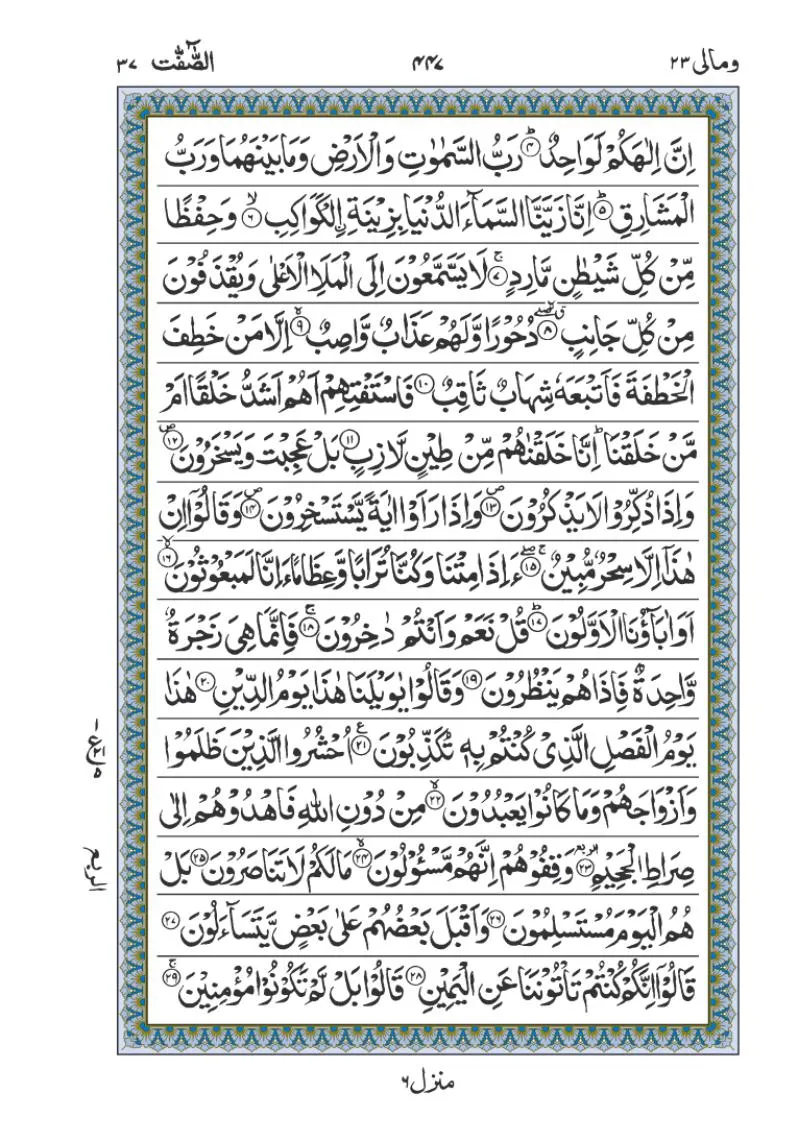 ومالی ۲۳ ۴۴۷ الصّٰٓفّٰت ۳۷
اِنَّ اِلٰهَكُمْ لَوَاحِدٌ ؕ﴿۴﴾ رَبُّ السَّمٰوٰتِ وَالْاَرْضِ وَمَا بَيْنَهُمَا وَرَبُّ
الْمَشَارِقِ ؕ﴿۵﴾ اِنَّا زَيَّنَّا السَّمَآءَ الدُّنْيَا بِزِيْنَةِ ۨالْكَوَاكِبِ ۙ﴿۶﴾ وَحِفْظًا
مِّنْ كُلِّ شَيْطٰنٍ مَّارِدٍ ۚ﴿۷﴾ لَا يَسَّمَّعُوْنَ اِلَى الْمَلَاِ الْاَعْلٰى وَيُقْذَفُوْنَ
مِنْ كُلِّ جَانِبٍ ﴿۸﴾ دُحُوْرًا وَّلَهُمْ عَذَابٌ وَّاصِبٌ ۙ﴿۹﴾ اِلَّا مَنْ خَطِفَ
الْخَطْفَةَ فَاَتْبَعَهٗ شِهَابٌ ثَاقِبٌ ﴿۱۰﴾ فَاسْتَفْتِهِمْ اَهُمْ اَشَدُّ خَلْقًا اَمْ
مَّنْ خَلَقْنَا ؕ اِنَّا خَلَقْنٰهُمْ مِّنْ طِيْنٍ لَّازِبٍ ﴿۱۱﴾ بَلْ عَجِبْتَ وَيَسْخَرُوْنَ ۪﴿۱۲﴾
وَاِذَا ذُكِّرُوْا لَا يَذْكُرُوْنَ ۪﴿۱۳﴾ وَاِذَا رَاَوْا اٰيَةً يَّسْتَسْخِرُوْنَ ۪﴿۱۴﴾ وَقَالُوْۤا اِنْ
هٰذَاۤ اِلَّا سِحْرٌ مُّبِيْنٌ ۚۖ﴿۱۵﴾ ءَاِذَا مِتْنَا وَكُنَّا تُرَابًا وَّعِظَامًا ءَاِنَّا لَمَبْعُوْثُوْنَ ۙ﴿۱۶﴾
اَوَاٰبَآؤُنَا الْاَوَّلُوْنَ ؕ﴿۱۷﴾ قُلْ نَعَمْ وَاَنْتُمْ دٰخِرُوْنَ ۚ﴿۱۸﴾ فَاِنَّمَا هِيَ زَجْرَةٌ
وَّاحِدَةٌ فَاِذَا هُمْ يَنْظُرُوْنَ ﴿۱۹﴾ وَقَالُوْا يٰوَيْلَنَا هٰذَا يَوْمُ الدِّيْنِ ﴿۲۰﴾ هٰذَا
يَوْمُ الْفَصْلِ الَّذِيْ كُنْتُمْ بِهٖ تُكَذِّبُوْنَ ﴿۲۱﴾ اُحْشُرُوا الَّذِيْنَ ظَلَمُوْا
وَاَزْوَاجَهُمْ وَمَا كَانُوْا يَعْبُدُوْنَ ۙ﴿۲۲﴾ مِنْ دُوْنِ اللّٰهِ فَاهْدُوْهُمْ اِلٰى
صِرَاطِ الْجَحِيْمِ ﴿۲۳﴾ وَقِفُوْهُمْ اِنَّهُمْ مَّسْـُٔوْلُوْنَ ۙ﴿۲۴﴾ مَا لَكُمْ لَا تَنَاصَرُوْنَ ﴿۲۵﴾ بَلْ
هُمُ الْيَوْمَ مُسْتَسْلِمُوْنَ ﴿۲۶﴾ وَاَقْبَلَ بَعْضُهُمْ عَلٰى بَعْضٍ يَّتَسَآءَلُوْنَ ﴿۲۷﴾
قَالُوْۤا اِنَّكُمْ كُنْتُمْ تَاْتُوْنَنَا عَنِ الْيَمِيْنِ ﴿۲۸﴾ قَالُوْا بَلْ لَّمْ تَكُوْنُوْا مُؤْمِنِيْنَ ۚ﴿۲۹﴾
الربع
منزل ۶